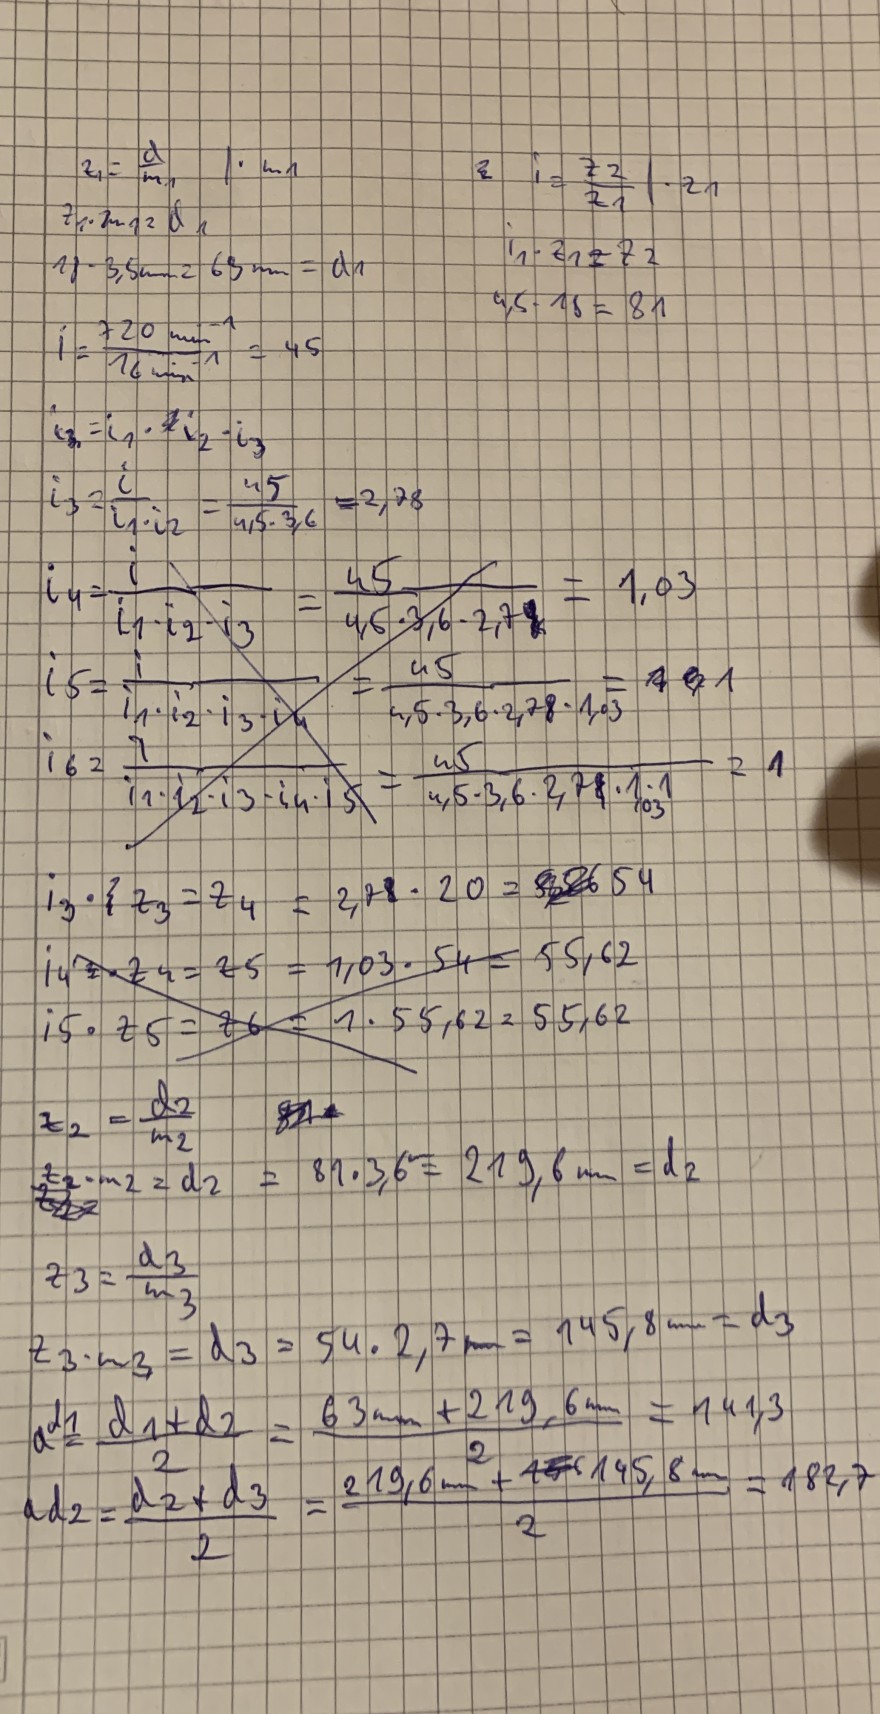 z1 = d/m1 | · m1
z1 · m1 = d1
18 · 3,5mm = 63mm = d1
i = 720 min⁻¹ / 16 min⁻¹ = 45
i = z2/z1 | · z1
i1 · z1 = z2
4,5 · 18 = 81
= i1 · i2 · i3
i3 = i / i1·i2 = 45 / 4,5·3,6 = 2,78
i4 = i / i1·i2·i3 = 45 / 4,5·3,6·2,78 = 1,03
i5 = i / i1·i2·i3·i4 = 45 / 4,5·3,6·2,78·1,03 = 1
i6 = 1 / i1·i2·i3·i4·i5 = 45 / 4,5·3,6·2,78·1,03·1 = 1
i3 · z3 = z4 = 2,78 · 20 = 54
i4 · z4 = z5 = 1,03 · 54 = 55,62
i5 · z5 = z6 = 1 · 55,62 = 55,62
z2 = d2/m2
z2 · m2 = d2 = 81 · 3,6 = 219,6mm = d2
z3 = d3/m3
z3 · m3 = d3 = 54 · 2,7mm = 145,8mm = d3
ad1 = d1+d2 / 2 = 63mm + 219,6mm / 2 = 141,3
ad2 = d2+d3 / 2 = 219,6mm + 145,8mm / 2 = 182,7